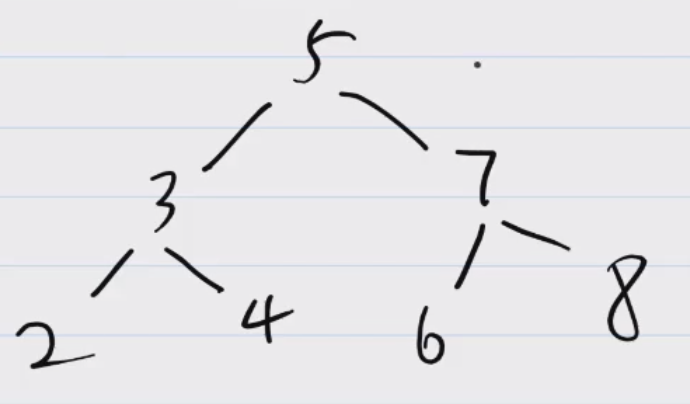 5
3 7
2 4 6 8